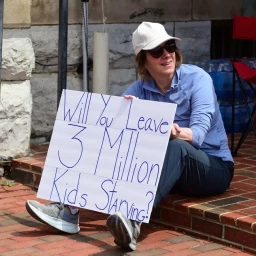 Will You Leave
3 Million
Kids Starving?